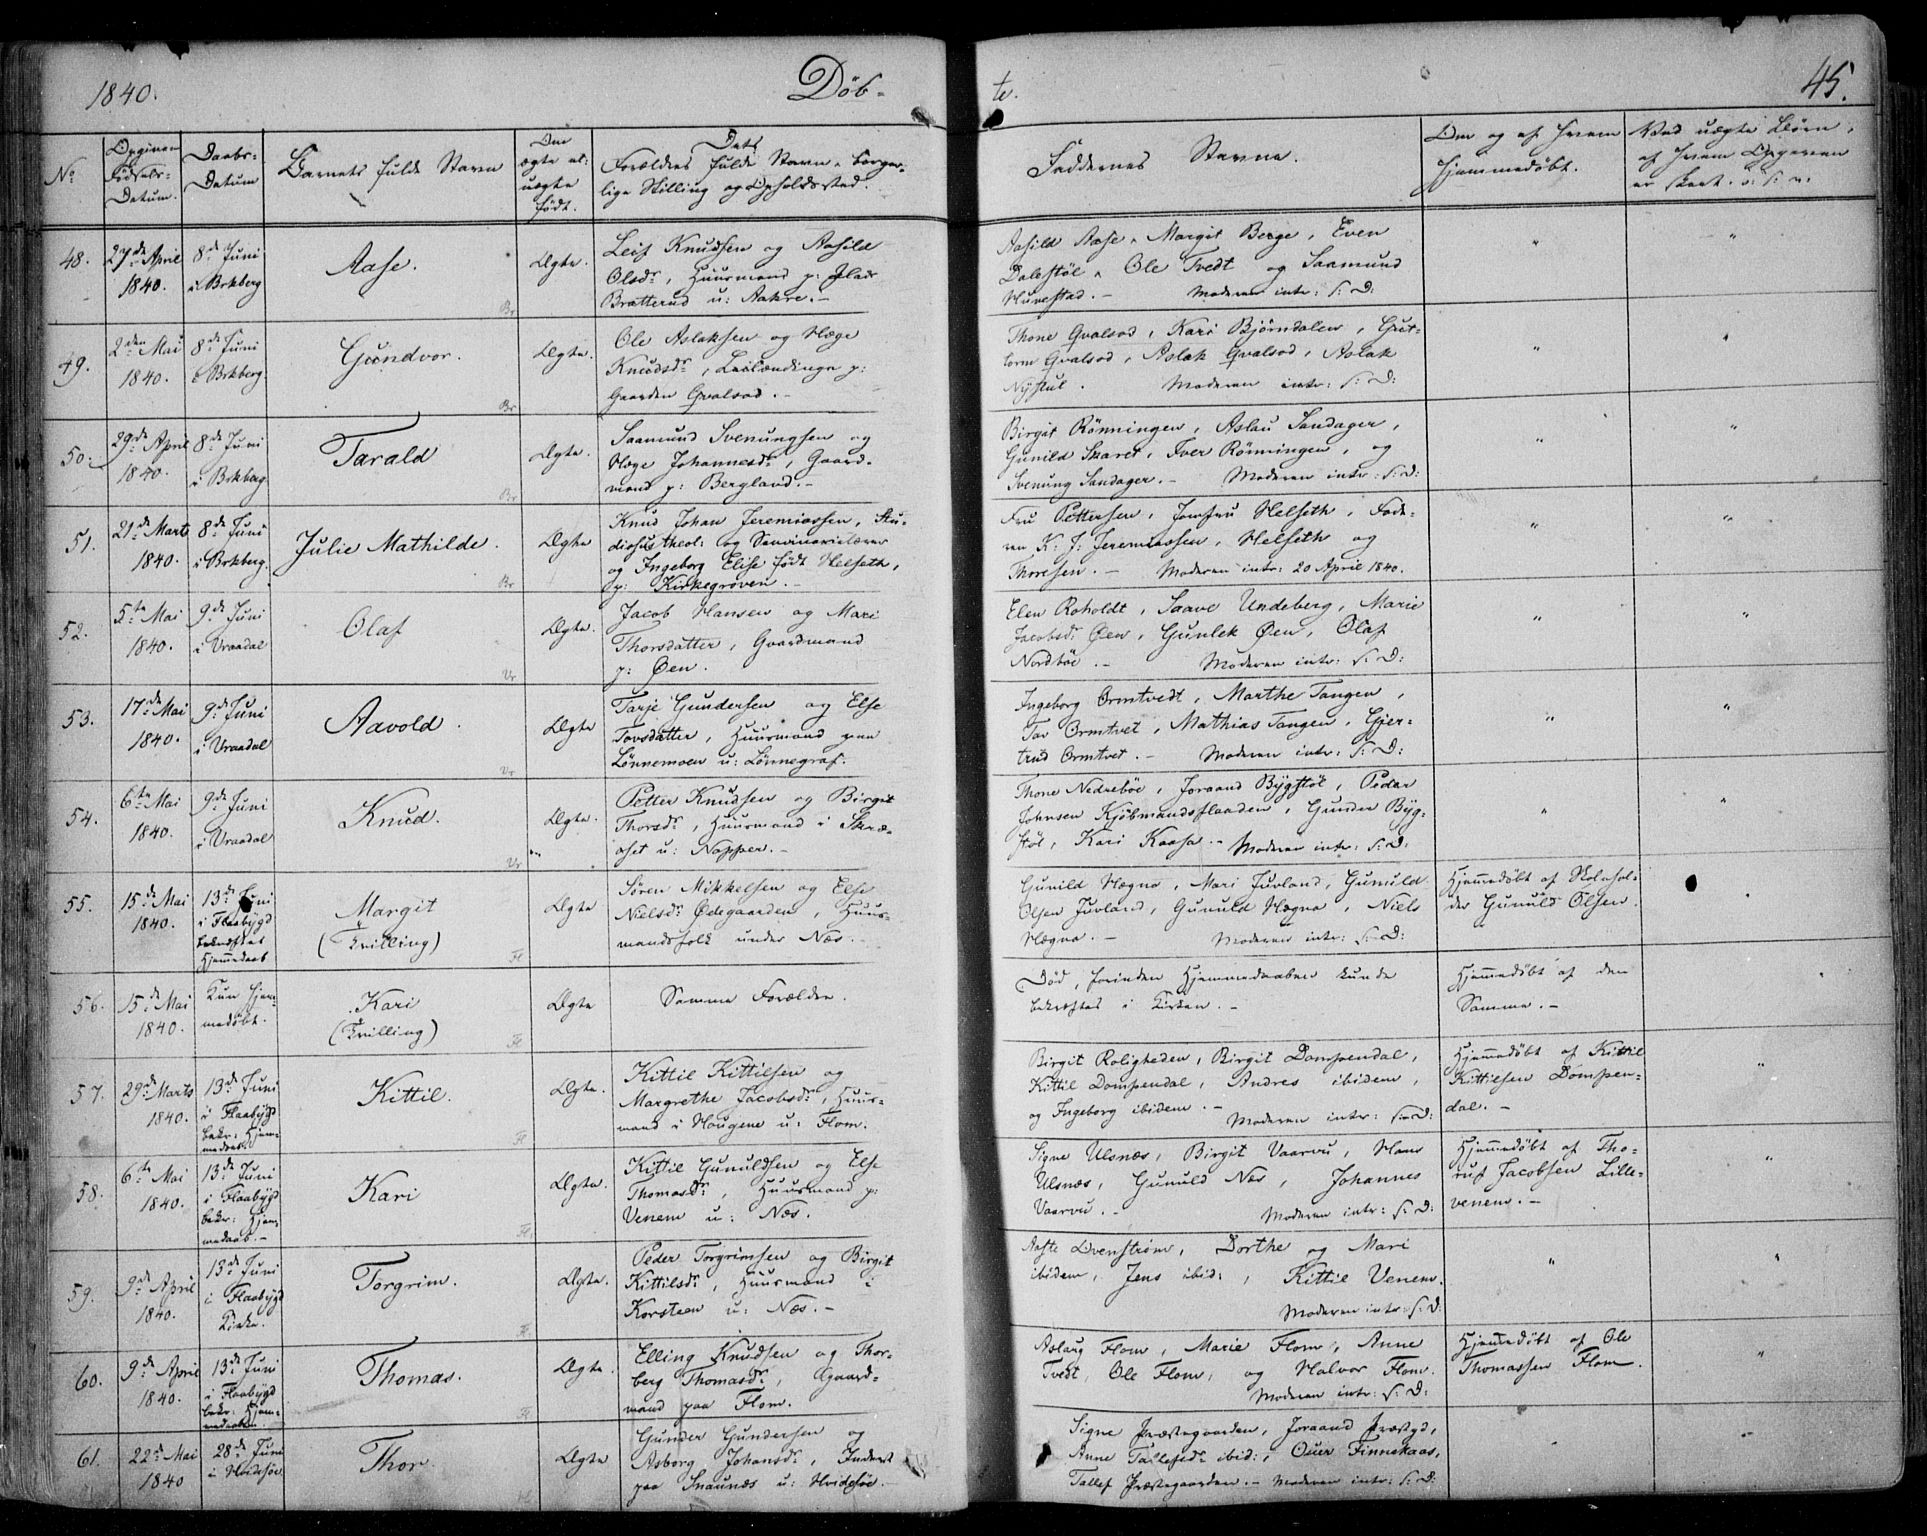 1840.
Døb-
te.
45.
No
Opgiven
Fødsels-
Datum.
Daabs-
Datum
Barnets fulde Navn
Om
ægte el:
uægte
født.
Dets
Forældres fulde Navn, borger-
lige Stilling og Opholdssted.
Faddernes Navne.
Om og af hvem
hjemmedøbt.
Ved uægte Børn,
af hvem Opgaven
er skeet. o: s: v:
48.
27de April
1840.
8de Juni
i Brkberg
Aase.
Br
Ægte.
Leif Knudsen og Aasild
Olsdr, Huusmand p:
Bratterud u: Aakre.-
Aasild Aase, Margit Berge, Even
Dalestöl, Ole Tvedt og Saamund
Huvestad.- Moderen intr: s: D:
"
"
49.
2den Mai
1840.
8de Juni
i Brkberg.
Gundvor.
Br
Ægte.
Ole Aslaksen og Hæge
Knudsdr, Leilændinge p:
Gaarden Qvalsod.-
Thone Qvalsod, Kari Bjørndalen, Gut-
torm Qvalsod, Aslak Qvalsod, Aslak
Nystul. Moderen intr: s: D:
"
"
50.
29de April
1840.
8de Juni
i Brkberg
Tarald
Br
Ægte.
Saamund Svenungsen og
Hæge Johannesdr, Gaard-
mand p: Bergland.-
Birgit Rönningen, Aslau Sandager,
Gunild Skaret, Iver Rönningen, og
Svenung Sandager.- Moderen intr: s: D:
"
"
51.
21de Marts
1840.
8de Juni
i Brkberg.
Julie Mathilde.
Br
Ægte
Knud Johan Jeremiassen, Stu-
diosus theol: og Seminarielærer
og Ingeborg Elise født Helseth,
p: Kirkegrøven.-
Fru Pettersen, Jomfru Helseth, Fade-
ren K: J: Jeremiassen, Helseth og
Thoresen.- Moderen intr: 20 April 1840.
"
"
52.
5te Mai
1840.
9de Juni
i Vraadal
Olaf
Vr
Ægte.
Jacob Hansen og Mari
Thorsdatter, Gaardmand
p: Øen.
Elen Roholdt, Saave Undeberg, Marie
Jacobsdr Øen, Gunlek Øen, Olaf
Nordbøe.- Moderen intr: s: D:
"
"
53.
17de Mai
1840.
9de Juni
i Vraadal
Aavold.
Vr
Ægte
Tarje Gundersen og Else
Tovsdatter, Huusmand paa
Lönnemoen u: Lönnegraf.
Ingeborg Ormtvedt, Marthe Tangen,
Tov Ormtvet, Mathias Tangen, Gjer-
trud Ormtvet.- Moderen intr: s: D:
"
"
54.
6te Mai
1840.
9de Juni
i Vraadal
Knud.
Vr
Ægte.
Petter Knudsen og Birgit
Thorsdr, Huusmand i Skræ-
oset u: Napper.-
Thone Nedrebøe, Joraand Bygstöl, Peder
Johnsen Kjöbmandsflaaden, Gunder Byg-
stöl, Kari Kaasa.- Moderen intr: s: D:
"
"
55.
15de Mai
1840.
13de Juni
i Flaabygd
bekræftet
Hjemmedaab
Margit
(Tvilling)
Fl
Ægte
Søren Mikkelsen og Else
Nielsdr Ødegaarden, Huus-
mandsfolk under Næs.
Gunild Hægna, Mari Juvland, Gunuld
Olsen Juvland, Gunuld Hægna, Niels
Hægna.- Moderen intr: s: D:
Hjemmedøbt af Skolehol-
der Gunuld Olsen.
"
56.
15de Mai
1840.
Kun hjem-
medøbt.
Kari
(Tvilling)
Fl
Ægte
Samme Forældre.
Død, forinden Hjemmedaaben kunde
bekræftes i Kirken.-
Hjemmedøbt af den
Samme.-
"
57.
29de Marts
1840.
13de Juni
i Flaabygd
bekr: Hjem-
medaab.
Kittil.
Fl
Ægte.
Kittil Kittilsen og
Margrethe Jacobsdr, Huus-
mand i Haugene u: Flom.
Birgit Roligheden, Birgit Dompendal,
Kittil Dompendal, Andres ibidem,
og Ingeborg ibidem.- Moderen intr: s: D:
Hjemmedøbt af Kittil
Kittilsen Dompen-
dal.-
"
58.
6te Mai
1840.
13de Juni
i Flaabygd
bekr: Hjem-
medaab.-
Kari
Fl
Ægte.
Kittil Gunuldsen og Else
Thomasdr, Huusmand p:
Venem u: Næs.
Signe Ulsnæs, Birgit Vaarvu, Hans
Ulsnæs, Gunuld Næs, Johannes
Vaarvu.- Moderen intr: s: D:
Hjemmedøbt af Tho-
ruf Jacobsen Lille-
venem.-
"
59.
9de April
1840.
13de Juni
i Flaabygd
Kirke.
Torgrim.
Fl.
Ægte.
Peder Torgrimsen og Birgit
Kittilsdr, Huusmand i
Korsteen u: Næs.-
Aaste Evenstrøm, Dorthe og Mari
ibidem, Jens ibid:, Kittil Venem.
Moderen intr: s: D:
"
"
60.
9de April
1840.
13de Juni
i Flaabygd
bekr: Hjem-
medaaben.
Thomas.
Fl
Ægte.
Elling Knudsen og Thor-
berg Thomasdr, Gaard-
mand paa Flom.
Aslaug Flom, Marie Flom, Anne
Tvedt, Ole Flom, og Halvor Flom.
Moderen intr: s: D:
Hjemmedøbt af Ole
Thomassen Flom.
"
61.
22de Mai
1840
28de Juni
i Hvideseie
Thor
Ægte
Gunder Gundersen og
Asborg Johansdr, Inderst
paa Snaunæs u: Hvideseie.
Signe Præstegaarden, Joraand Præstgd,
Anne Tallefsdr ibid:, Oüer Finnekaas,
Tallef Præstegaarden.- Moderen intr: s: D:
"
"